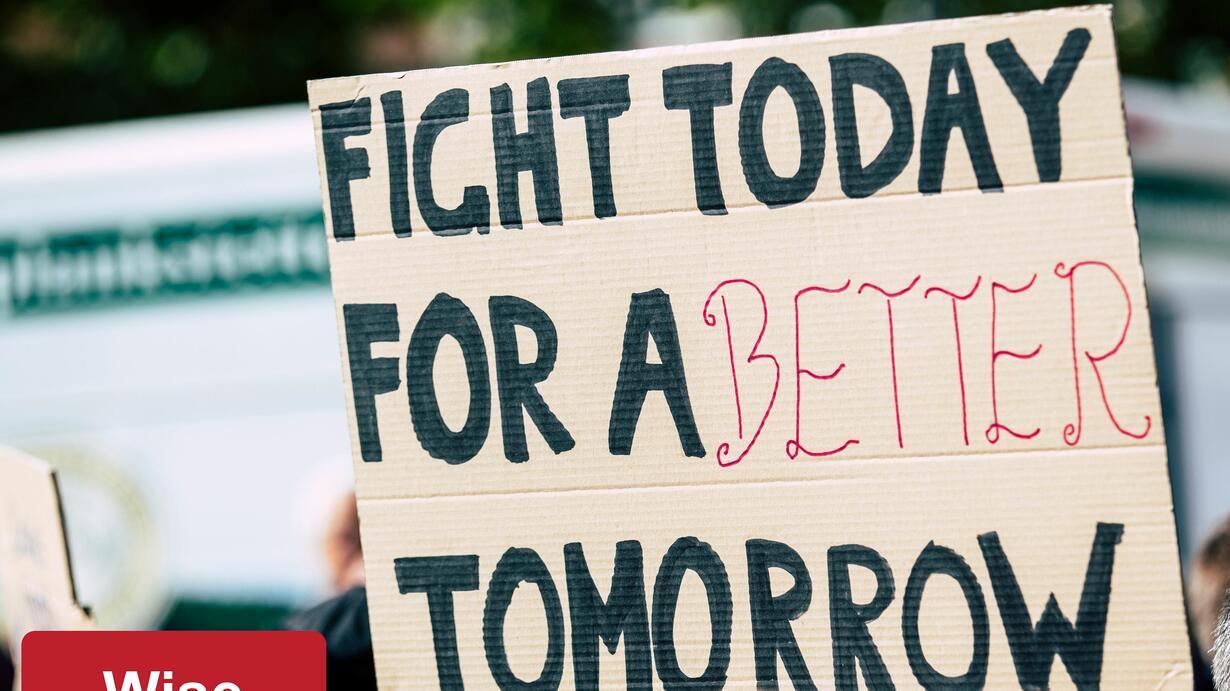 FIGHT TODAY
FOR A BETTER
TOMORROW
Wise